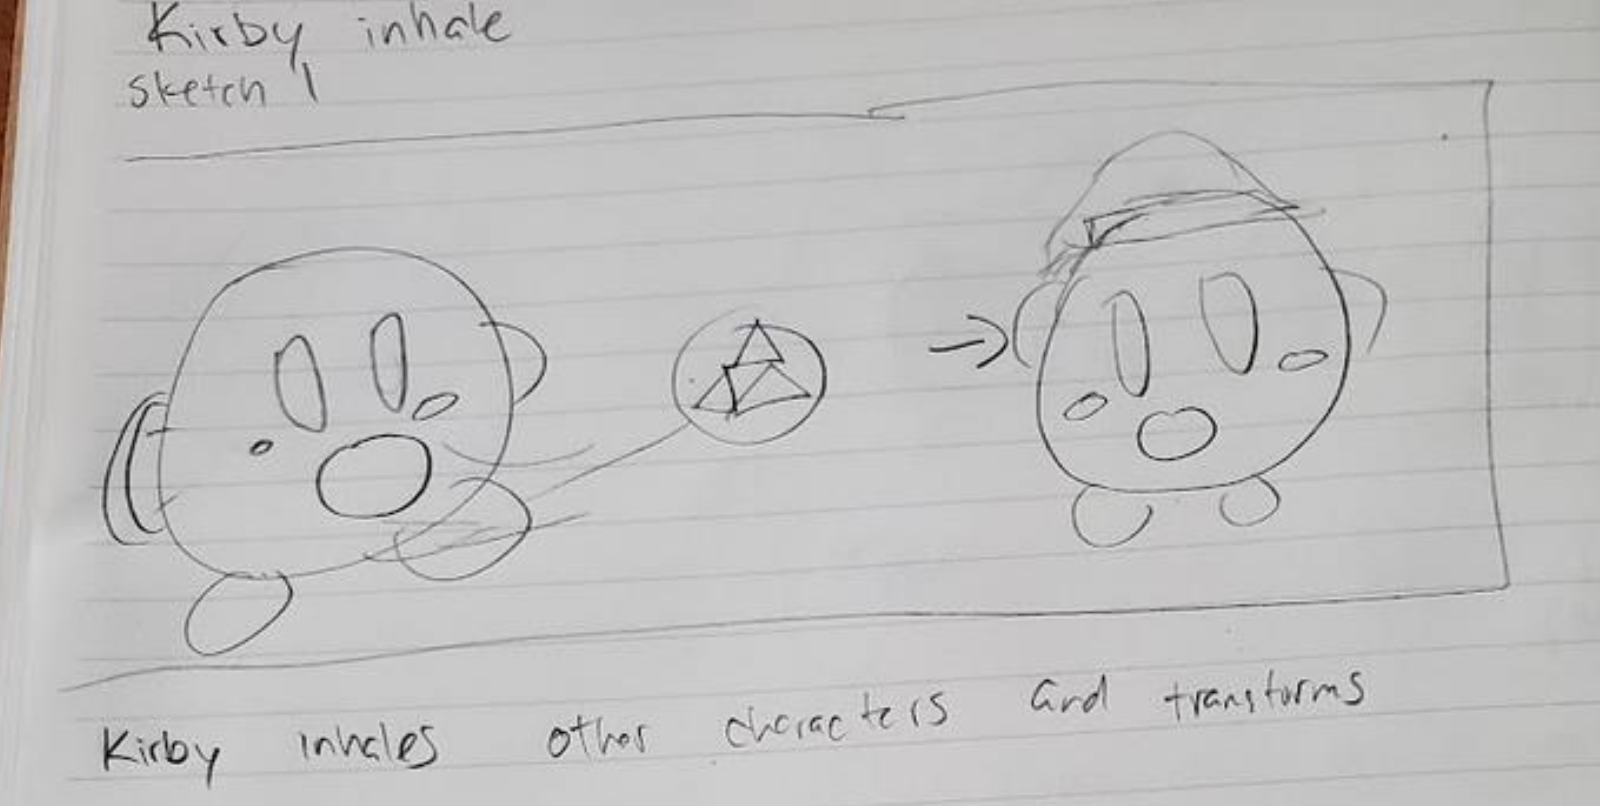 Kirby inhale
sketch 1
Kirby inhales other characters and transforms